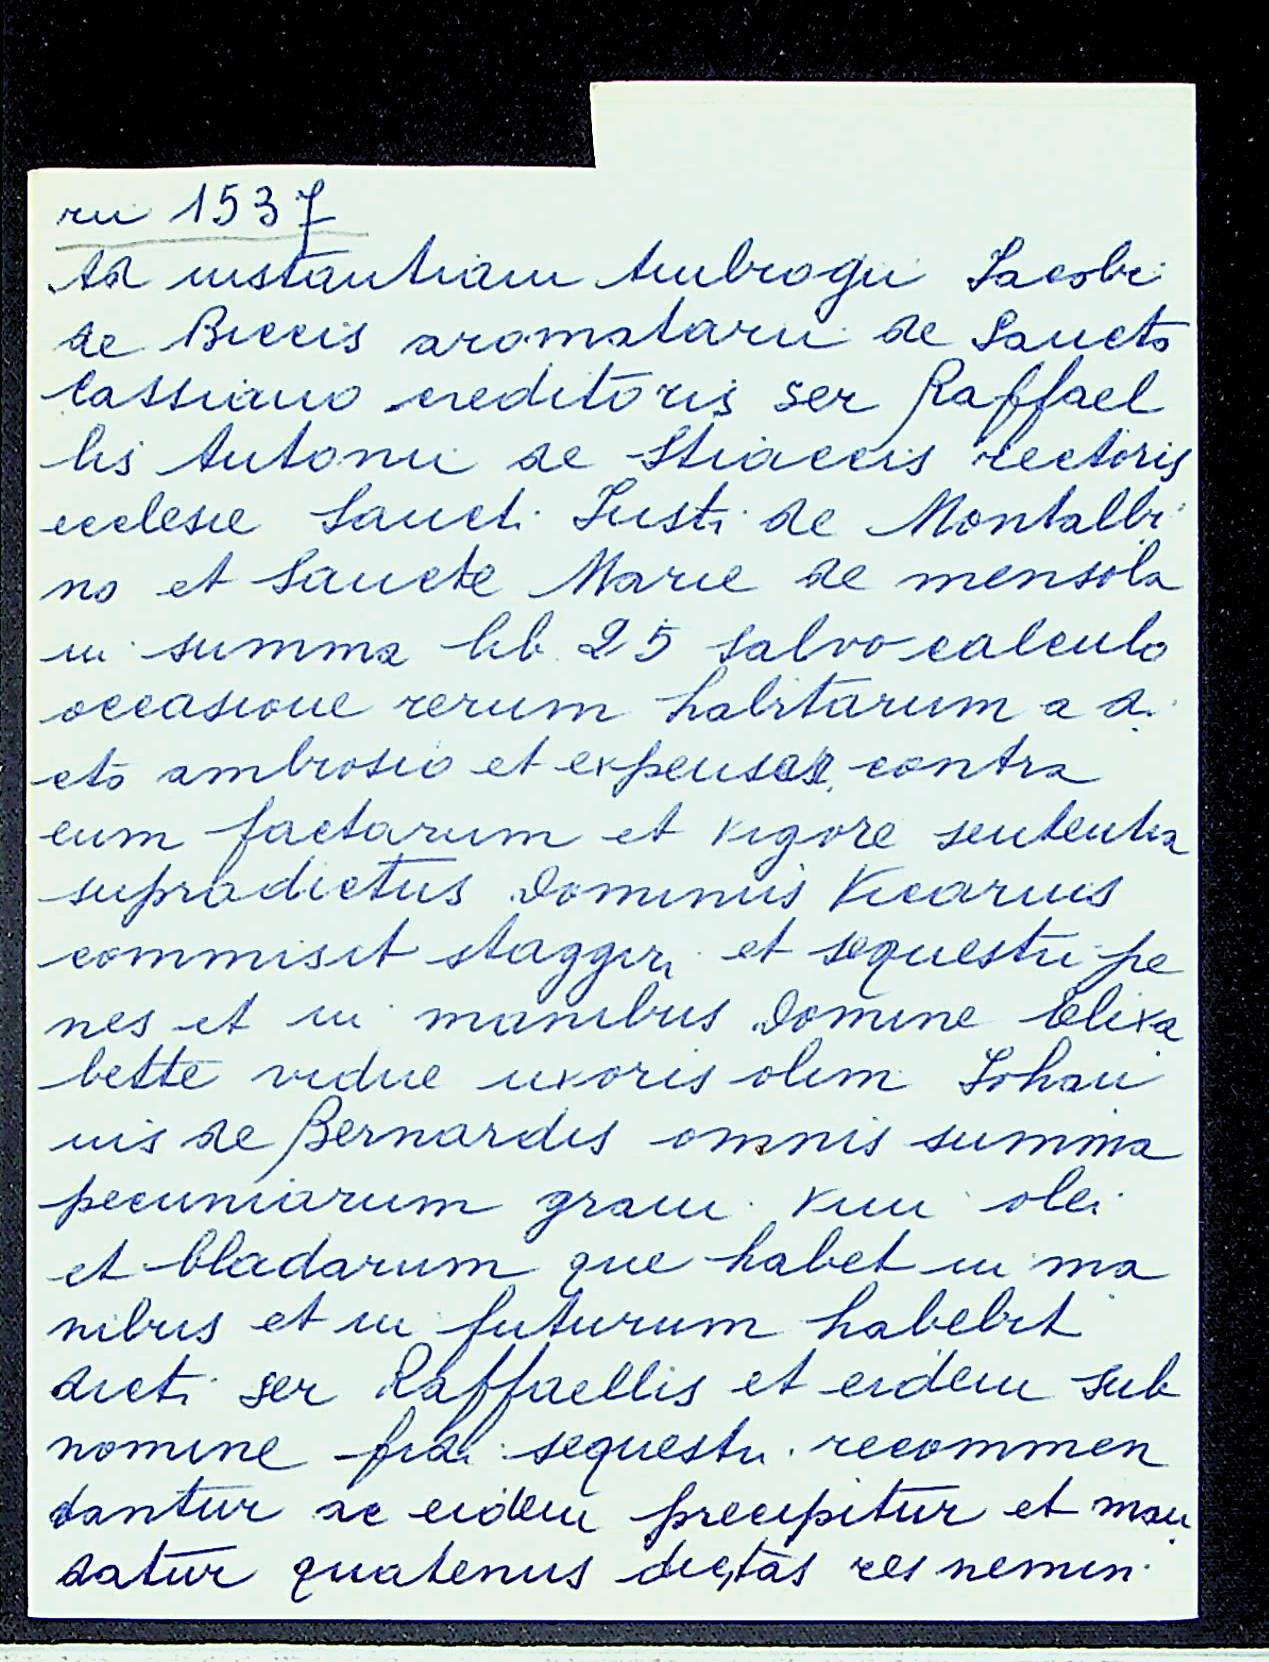 rii 1537
Ad instantiam Ambrogii Iacobi
de Biccis aromatarii de Sancto
Cassiano creditoris ser Raffael
lis Antonii de Stiaccis rectoris
ecclesie Sancti Iusti de Montalbi
no et Sancte Marie de mensola
in summa lib. 25 salvo calculo
occasione rerum habitarum a di
cto ambrosio et expensar. contra
eum factarum et vigore sententia
supradictus Dominus Vicarius
commisit staggiri et sequestri pe
nes et in manibus Domine Elixa
bette vidue uxoris olim Iohan
nis de Bernardis omnis summa
pecuniarum grani vini olei
et bladarum que habet in ma
nibus et in futurum habebit
dicti ser Raffaellis et eidem sub
nomine fidi sequestri recommen
dantur ac eidem precipitur et man
datur quatenus dictas res nemini